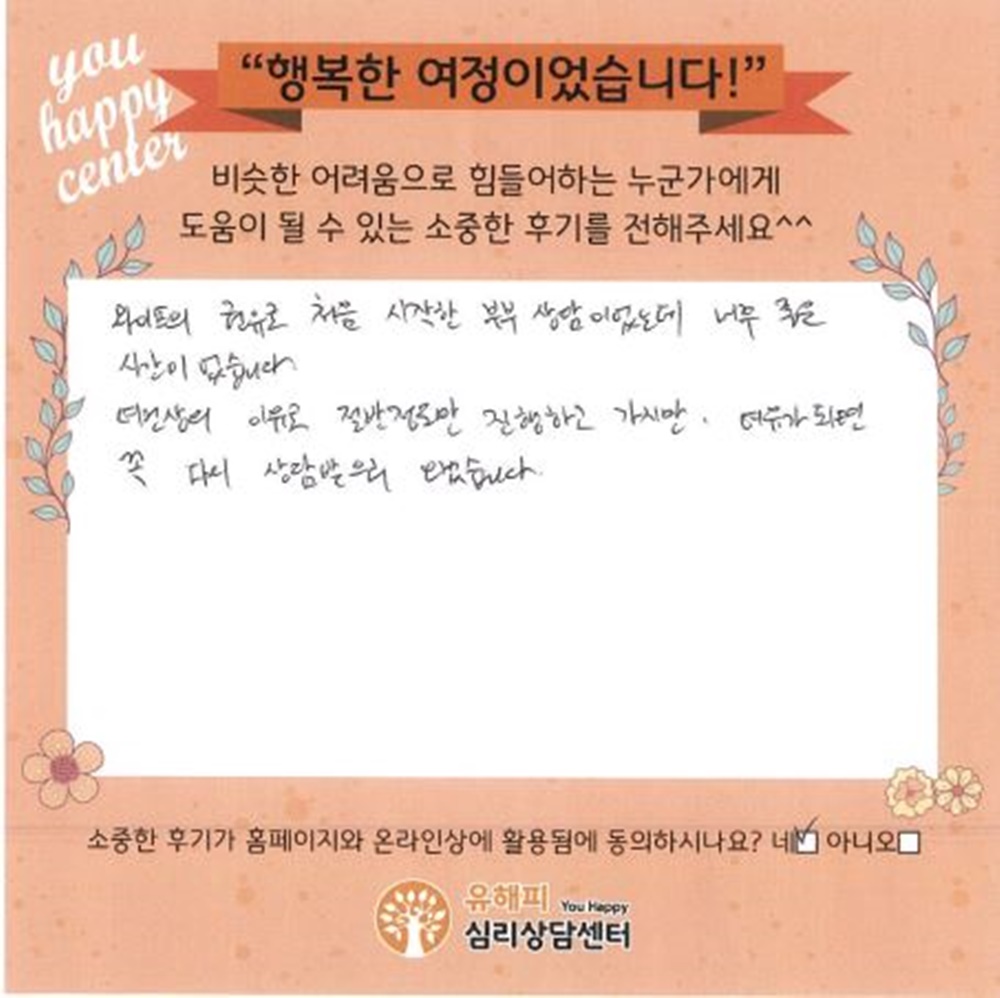 you
happy
center
“행복한 여정이었습니다!”
비슷한 어려움으로 힘들어하는 누군가에게
도움이 될 수 있는 소중한 후기를 전해주세요^^
와이프의 권유로 처음 시작한 부부 상담이었는데 너무 좋은
시간이 었습니다.
여건상의 이유로 절반정도만 진행하고 가지만. 여유가되면
꼭 다시 상담받으러 오겠습니다.
소중한 후기가 홈페이지와 온라인상에 활용됨에 동의하시나요? 네 아니오
유해피 You Happy
심리상담센터